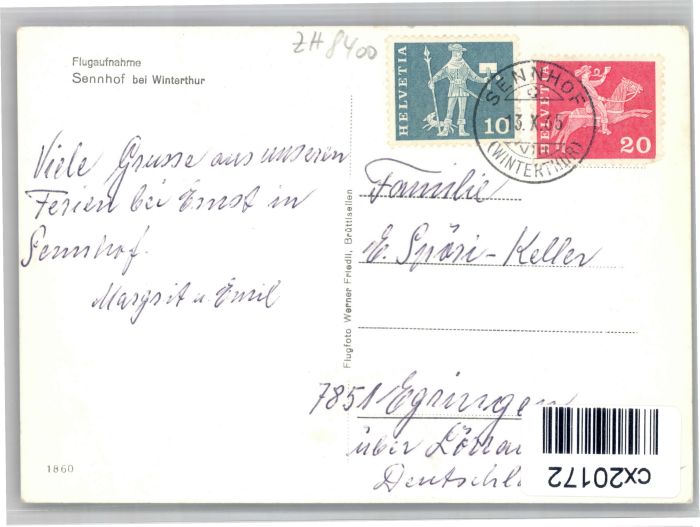 ZH 8400
Flugaufnahme
Sennhof bei Winterthur
HELVETIA
10
HELVETIA
20
SENNHOF
13.X.65
(WINTERTHUR)
Viele Grüsse aus unseren
Ferien bei Ernst in
Sennhof.
Margrit u. Emil
Flugfoto Werner Friedli, Brüttisellen
Familie
E. Spöri-Keller
7851 Egringen
über
1860
cx20172